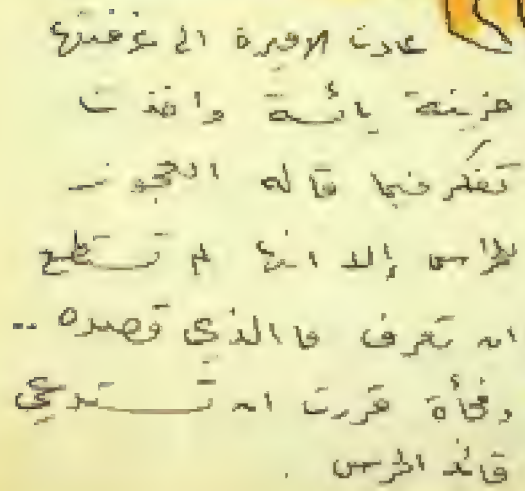 عادت الاميرة الى غرفتها
حزينة يائسة واخذت
تفكر فيما قاله العجوز
للحراس إلا انها لم تستطع
ان تعرف ما الذي قصده ..
وفجأة قررت ان تستدعي
قائد الحرس .